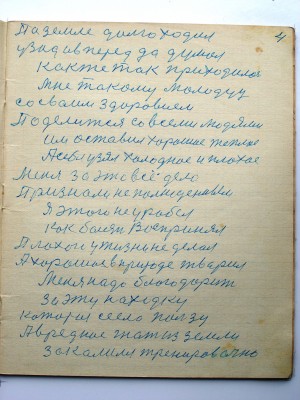 4
Па земле долго ходил
узад и вперед да думал
как же так приходилось
мне такому молодцу
со своим здоровием
Поделится со всеми людями
им оставил хорошие теплые
А себе узял холодное и плохое
Меня за это всё дело
Признали не полноценным
Я этого не уробел
как боляч восприняял
Плохого у жизне не делал
А хорошое в природе тварил
Меня надо благодарит
за эту находку
которая сеело ползу
А вредное гнат из земли
закалили тренировачно